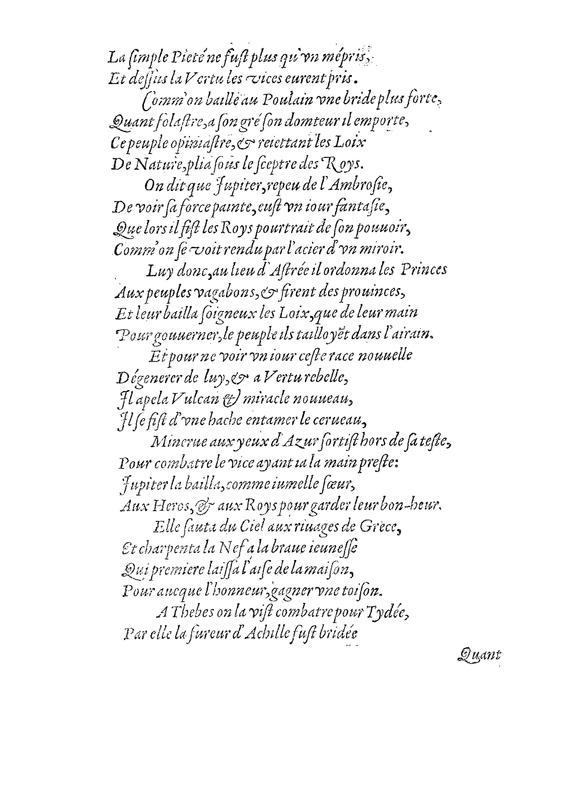 La ſimple Pieté ne fuſt plus qu'vn mépris,
Et deſſus la Vertu les vices eurent pris.
Comm' on baille au Poulain vne bride plus forte,
Quant folaſtre, a ſon gré ſon domteur il emporte,
Ce peuple opiniaſtre, & reiettant les Loix
De Nature, plia ſous le ſceptre des Roys.
On dit que Jupiter, repeu de l'Ambroſie,
De voir ſa force painte, euſt vn iour fantaſie,
Que lors il fiſt les Roys pourtrait de ſon pouuoir,
Comm' on ſe voit rendu par l'acier d'vn miroir.
Luy donc, au lieu d'Aſtrée il ordonna les Princes
Aux peuples vagabons, & firent des prouinces,
Et leur bailla ſoigneux les Loix, que de leur main
Pour gouuerner, le peuple ils tailloyẽt dans l'airain.
Et pour ne voir vn iour ceſte race nouuelle
Dégenerer de luy, & a Vertu rebelle,
Jl apela Vulcan & miracle nouueau,
Jl ſe fiſt d'vne hache entamer le cerueau,
Minerue aux yeux d'Azur ſortiſt hors de ſa teſte,
Pour combatre le vice ayant ia la main preſte:
Jupiter la bailla, comme iumelle ſœur,
Aux Heros, & aux Roys pour garder leur bon-heur.
Elle ſauta du Ciel aux riuages de Grece,
Et charpenta la Nef a la braue ieuneſſe
Qui premiere laiſſa l'aiſe de la maiſon,
Pour aucque l'honneur, gagner vne toiſon.
A Thebes on la viſt combatre pour Tydée,
Par elle la fureur d'Achille fuſt bridée
Quant